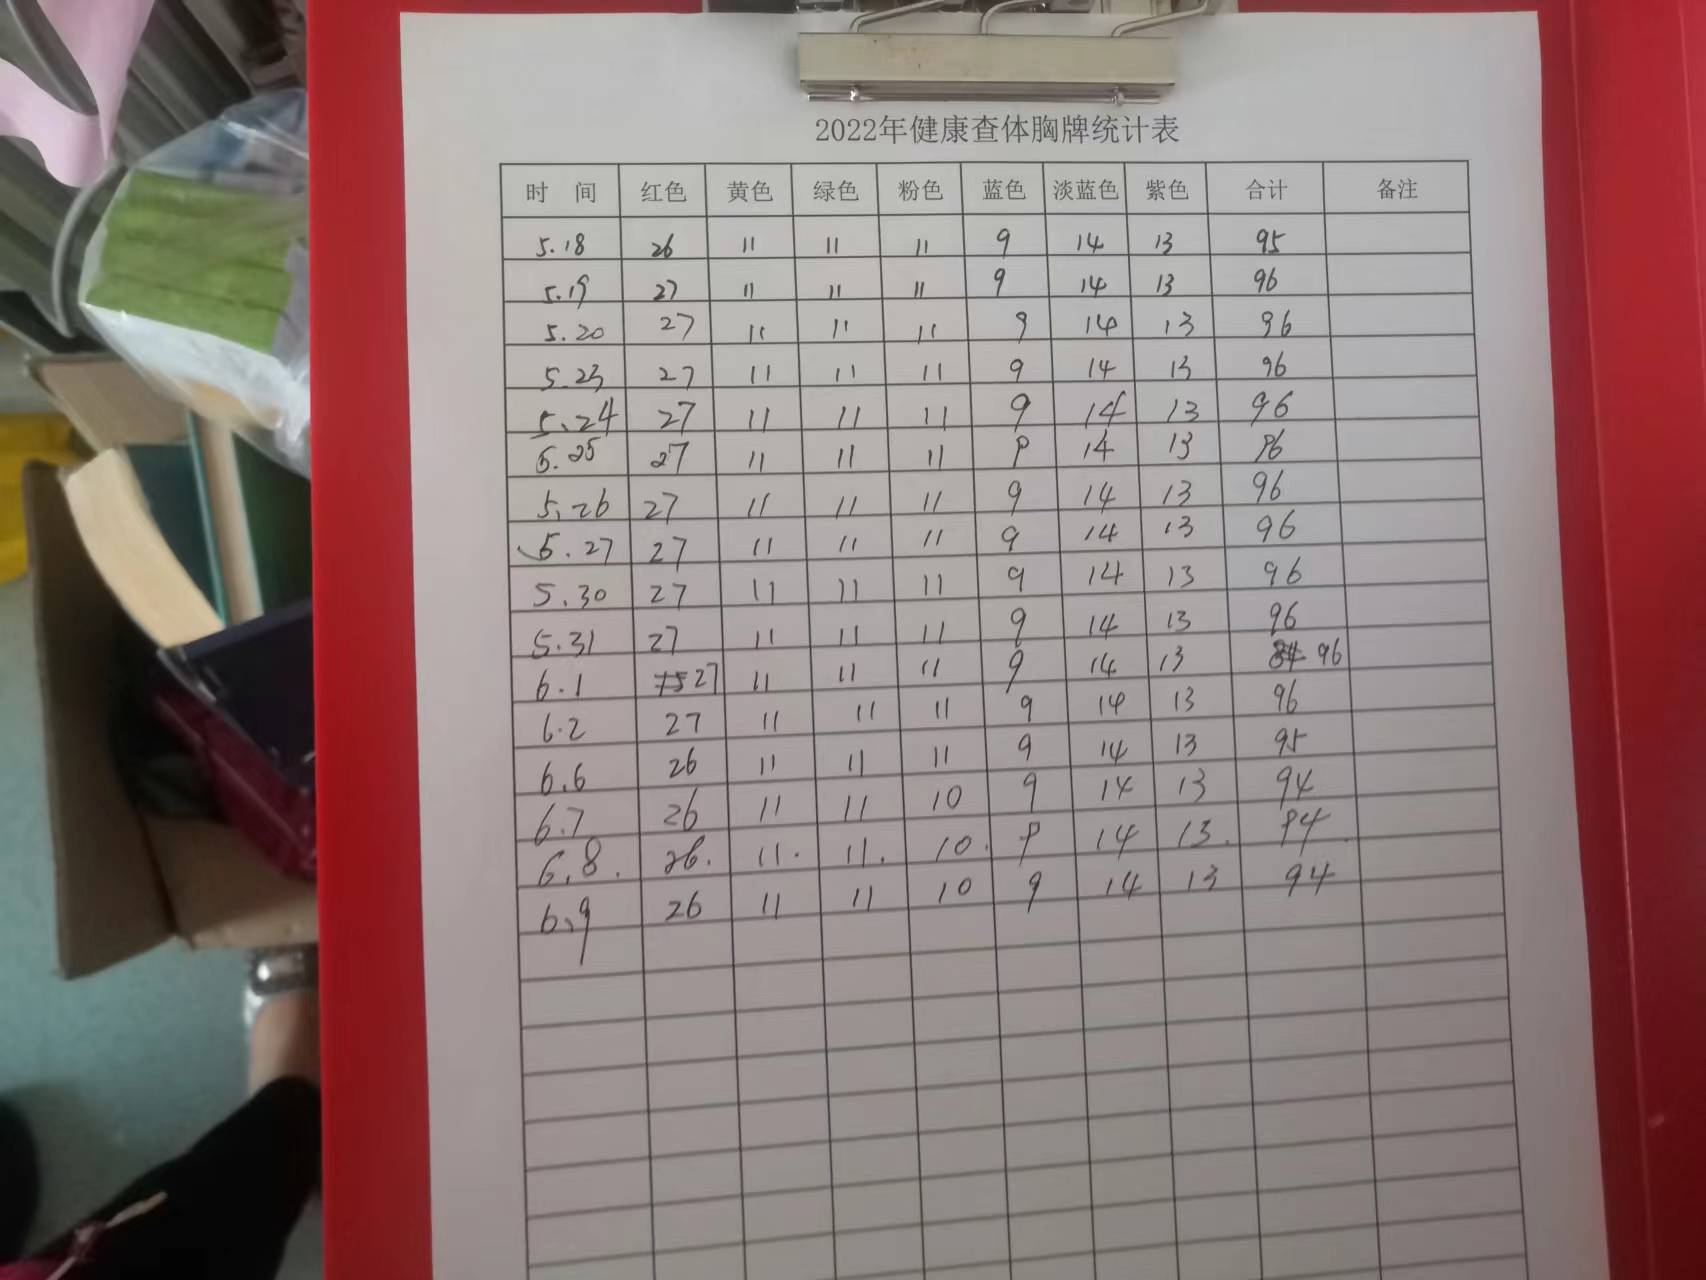 2022年健康查体胸牌统计表
时 间 红色 黄色 绿色 粉色 蓝色 淡蓝色 紫色 合计 备注
5.18 26 11 11 11 9 14 13 95
5.19 27 11 11 11 9 14 13 96
5.20 27 11 11 11 9 14 13 96
5.23 27 11 11 11 9 14 13 96
5.24 27 11 11 11 9 14 13 96
5.25 27 11 11 11 9 14 13 96
5.26 27 11 11 11 9 14 13 96
5.27 27 11 11 11 9 14 13 96
5.30 27 11 11 11 9 14 13 96
5.31 27 11 11 11 9 14 13 96
6.1 27 11 11 11 9 14 13 96
6.2 27 11 11 11 9 14 13 96
6.6 26 11 11 11 9 14 13 95
6.7 26 11 11 10 9 14 13 94
6.8. 26. 11. 11. 10. 9 14 13. 94
6.9 26 11 11 10 9 14 13 94